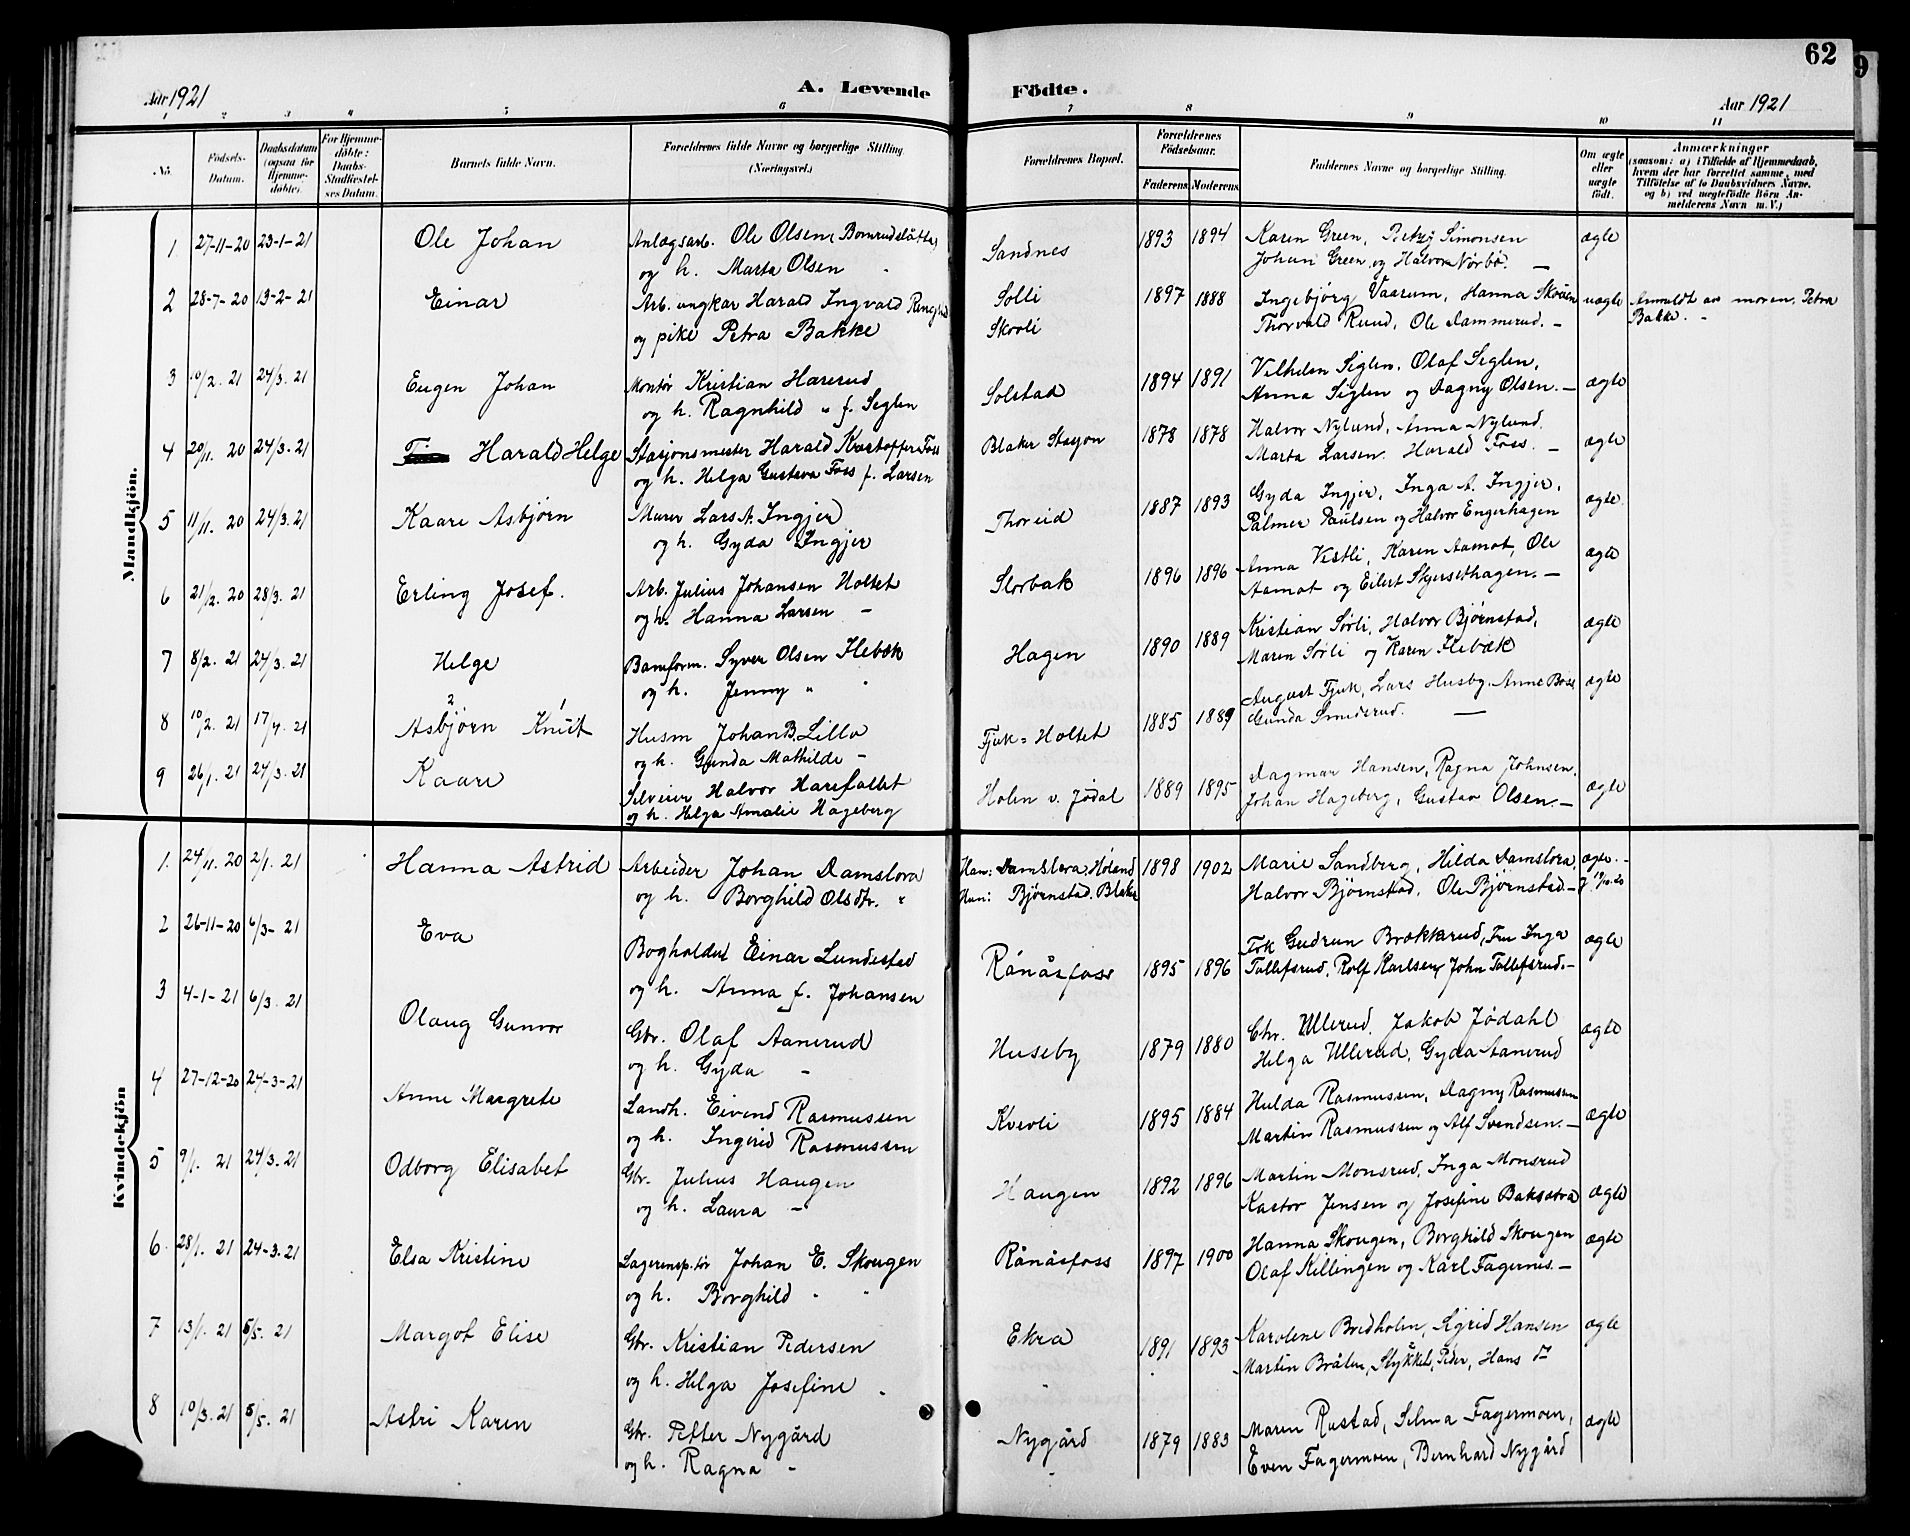 62
9
Aar 1921
A. Levende
Födte.
Aar 1921
1 2 3 4 5 6 7 8 9 10 11
No.
Födsels-Datum.
Daabsdatum (ogsaa for Hjemmedöbte).
For Hjemmedöbte: Daabs-Stadfæstelses Datum.
Barnets fulde Navn.
Forældrenes fulde Navne og borgerlige Stilling (Næringsvei.)
Forældrenes Bopæl.
Forældrenes Födselsaar.
Faderens. Moderens.
Faddernes Navne og borgerlige Stilling.
Om ægte eller uægte födt.
Anmærkninger
(saasom: a) i Tilfælde af Hjemmedaab,
hvem der har forrettet samme, med
Tilföielse af to Daabsvidners Navne.
og b) ved uægtefödte Börn An-
melderens Navn m. V.)
Mandkjön.
1 27-11-20 23-1-21 Ole Johan Anlægsarb. Ole Olsen (Bomrudslåtta) Sandnes 1893 1894 Karen Green, Simonsen ægte
og h. Marta Olsen Johan Green og Halvor Nørbø. —
2 28-7-20 13-2-21 Einar Arb. ungkar Harald Ingvald Solli 1897 1888 Ingebjörg Vaarum, Hanna Skoven uægte Anmeldt av moren, Petra
og pike Petra Bakke Skovli Thorvald Ruud, Ole Dammerud. — Bakke. -
3 10/2. 21 24/3. 21 Eugen Johan Montør Kristian Harerud Solstad 1894 1891 Vilhelm Seglen, Olaf Seglen, ægte
og h. Ragnhild " f. Seglen Anna Seglen og Dagny Olsen. —
4 20/11. 20 24/3. 21 Harald Helge Stasjonsmester Harald Kristoffer Foss Blaker Stasjon 1878 1878 Halvor Nylund, Anna Nylund, ægte
og h. Helga Gustava Foss f. Larsen Marta Larsen. Harald Foss. —
5 11/11. 20 24/3. 21 Kaare Asbjørn Murer Lars A. Ingjer Thoreid 1887 1893 Gyda Ingjer, Inga A. Ingjer, ægte
og h. Gyda Ingjer Palmer Paulsen og Halvor Engerhagen
6 21/2. 20 28/3. 21 Erling Josef. Arb. Julius Johansen Holtet Storbak 1896 1896 Anna Vestli, Karen Aamot, Ole ægte
og h. Hanna Larsen - Aamot og Eilert Skjersethagen. —
7 8/2. 21 24/3. 21 Helge Banform. Syver Olsen Flebæk Hagen 1890 1889 Kristian Sørli, Halvor Bjørnstad, ægte
og h. Jenny " Maren Sørli og Karen Flebæk
8 10/2. 21 17/4. 21 2 Asbjörn 1 Knut Husm Johan B. Lillo Fjuk-Holtet 1885 1889 August Fjuk, Lars Husby, Anne Boss ægte
og h. Gunda Mathilde - Gunda Smederud. —
9 26/1. 21 24/3. 21 Kaare Selveier Halvor Harefallet Holen v. Jødal 1889 1895 Dagmar Hansen, Ragna Johnsen, ægte
og h. Helga Amalie Hageberg Johan Hageberg, Gustav Olsen. —
Kvindekjön
1. 24/11. 20 2/1. 21 Hanna Astrid Arbeider Johan Damslora Han: Damslora, Høland 1898 1902 Marie Sandberg, Hilda Damslora, ægte. -
og h. Borghild Olsdtr. " Hun: Bjørnstad, Blaker Halvor Bjørnstad, Ole Bjørnstad. — 19/10.20
2 26-11-20 6/3-21 Eva Bogholder Einar Lundestad Rånåsfoss 1895 1896 Frk Gudrun Brækkerud, Fru Inga ægte
og h. Anna f. Johansen Tollefsrud, Rolf Karlsen, John Tollefsrud. —
3 4-1-21 6/3. 21 Olaug Gunvor Gbr. Olaf Aanerud Huseby 1879 1880 Chr. Ullerud, Jakob Jødahl ægte
og h. Gyda - Helga Ullerud, Gyda Aanerud
4 27-12-20 24-3-21 Anne Margrete Landh. Eivind Rasmussen Kvevli 1895 1884 Hulda Rasmussen, Dagny Rasmussen ægte
og h. Ingerid Rasmussen Martin Rasmussen og Alf Svendsen. —
5 9/1. 21 24/3. 21 Odborg Elisabet Gbr. Julius Haugen Haugen 1892 1896 Martin Monsrud, Inga Monsrud ægte
og h. Laura - Kastor Jensen og Josefine Baksætra
6. 28/1. 21 24-3.21 Elsa Kristine Lagerinsp.tör Johan E. Skougen Rånåsfoss 1897 1900 Hanna Skougen, Borghild Skougen ægte
og h. Borghild " " Olaf Killingen og Karl Fagernes. —
7 13/1. 21 5/5. 21 Margot Elise Gbr. Kristian Pedersen Ekra 1891 1893 Karolene Bredholen, Sigrid Hansen ægte
og h. Helga Josefine " Martin Bråten, Peder, Hans do
8 10/3. 21 5/5. 21 Astri Karen Gbr. Petter Nygård Nygård 1879 1883 Maren Rustad, Selma Fagermoen, ægte
og h. Ragna - Even Fagermoen, Bernhard Nygård